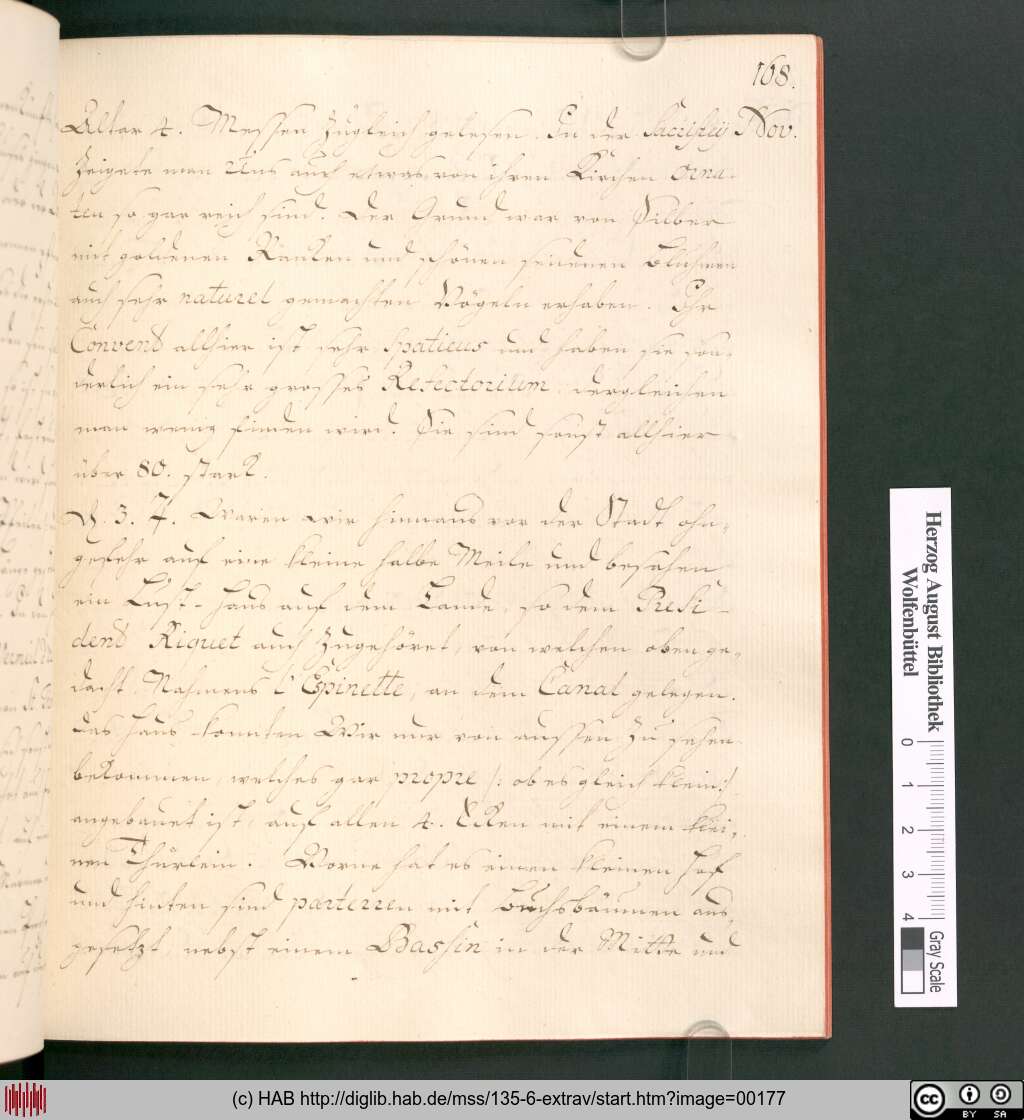 168.
Nov.
Altar 4. Messen zugleich gelesen. In der Sacristeÿ
Zeigete man Uns auch etwas von ihren Kirchen Orna-
ten so gar reich sind. Der Grund war von Silber
mit goldenen Rancken und schönen seidenen Bluhmen
auch sehr naturel gemachten Vögeln erhaben. Ihr
Convent allhier ist sehr Spatieus und haben sie son-
derlich ein sehr grosses Refectorium, dergleichen
man wenig finden wird. Sie sind sonst allhier
über 80. starck.
D. 3. Waren wir hinnaus vor der Stadt ohn-
gefehr auf eine kleine halbe Meile und besahen
ein Lust-Haus auf dem Lande, so dem Presi-
dent Riquet auch Zugehöret, von welchen oben ge-
dacht, Nahmens l'Espinette, an dem Canal gelegen.
Das Haus konnten Wir nur von aussen zu sehen
bekommen, welches gar propre (: ob es gleich klein :)
angebauet ist, auf allen 4. Ecken mit einem klei-
nen Thürlein. Vorne hat es einen kleinen Hof
und hinten sind parterren mit Buchsbäumen aus-
gesetzt, nebst einem Bassin in der Mitte und
Herzog August Bibliothek
Wolfenbüttel
0 1 2 3 4
Gray Scale
(c) HAB http://diglib.hab.de/mss/135-6-extrav/start.htm?image=00177
cc BY SA